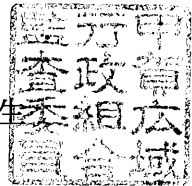 甲賀広域
行政組合
監査委員
生